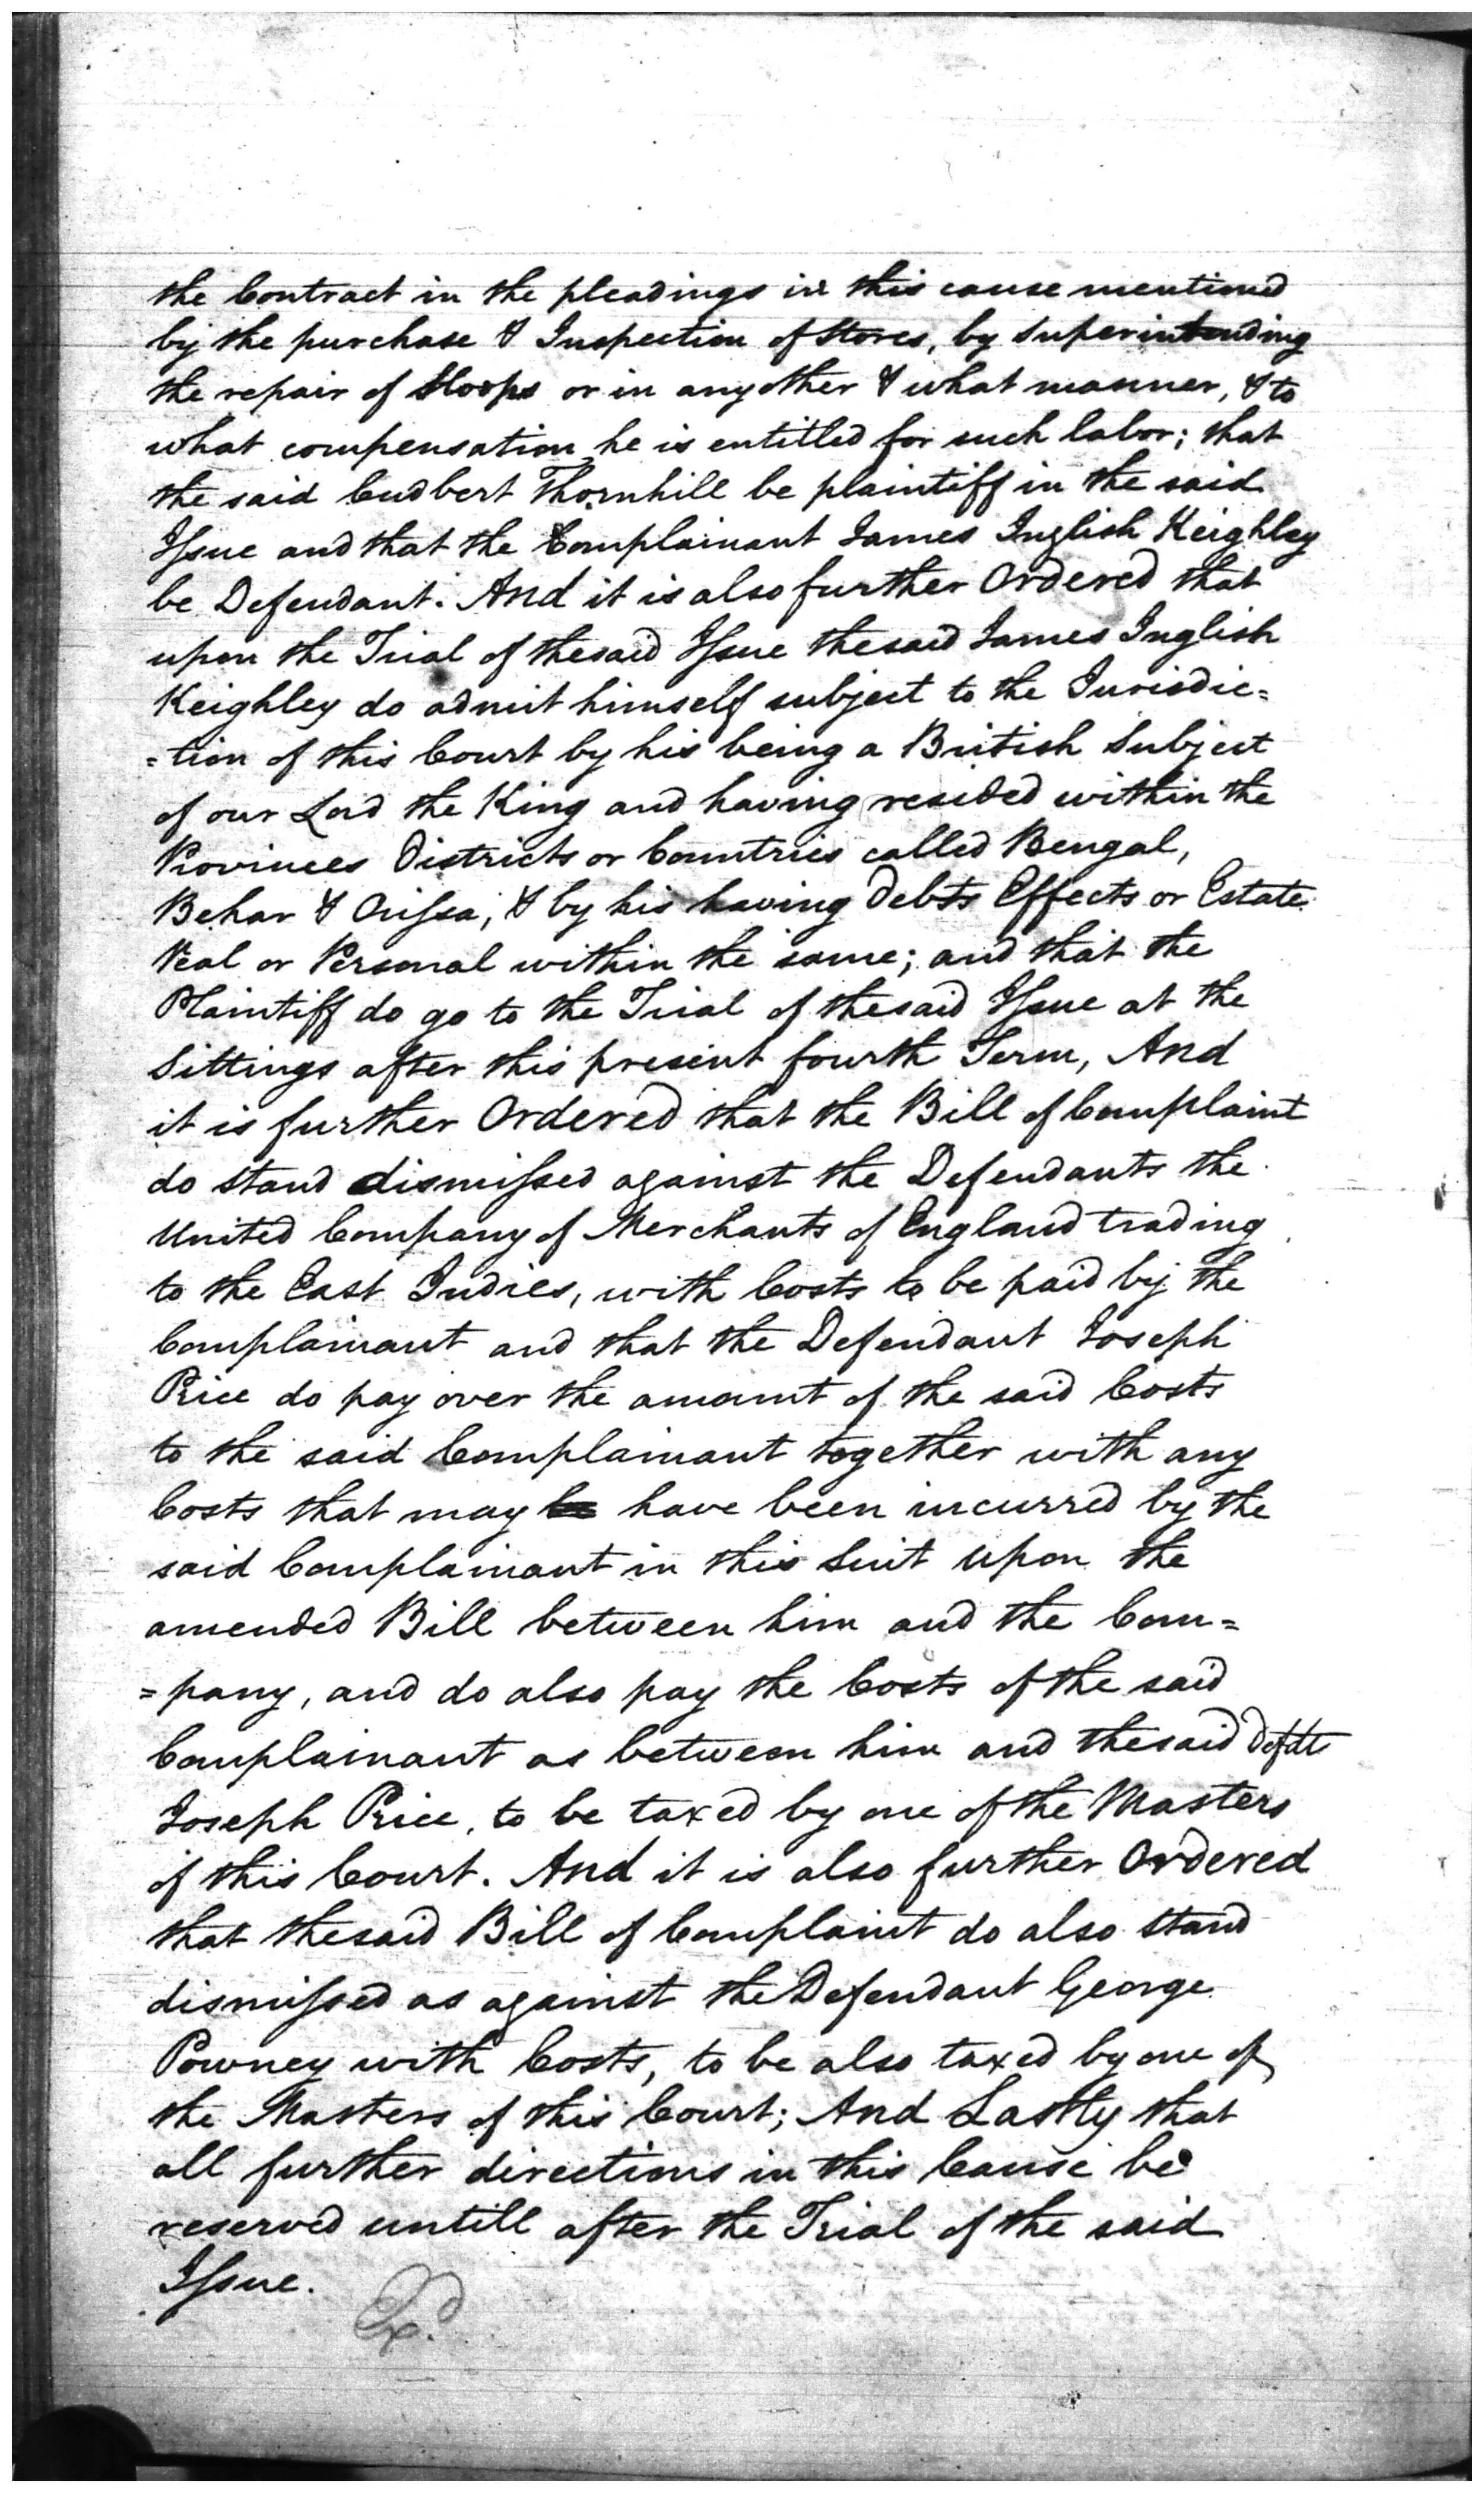 the Contract in the pleadings in this cause mentioned
by the purchase & Inspection of Stores, by Superintending
the repair of Sloops or in any other & what manner, & to
what compensation he is entitled for such labor; that
the said Cudbert Thornhill be plaintiff in the said
Issue and that the Complainant James Inglish Keighley
be Defendant. And it is also further Ordered that
upon the Trial of the said Issue the said James Inglish
Keighley do admit himself subject to the Jurisdic=
=tion of this Court by his being a British Subject
of our Lord the King and having resided within the
Provinces Districts or Countries called Bengal,
Behar & Orissa, & by his having Debts Effects or Estate
Real or Personal within the same; and that the
Plaintiff do go to the Trial of the said Issue at the
Sittings after this present fourth Term, And
it is further Ordered that the Bill of Complaint
do stand dismissed against the Defendants the
United Company of Merchants of England trading
to the East Indies, with Costs to be paid by the
Complainant and that the Defendant Joseph
Price do pay over the amount of the said Costs
to the said Complainant together with any
Costs that may have been incurred by the
said Complainant in this Suit upon the
amended Bill between him and the Com=
=pany, and do also pay the Costs of the said
Complainant as between him and the said Defdts
Joseph Price, to be taxed by one of the Masters
of this Court. And it is also further Ordered
that the said Bill of Complaint do also stand
dismissed as against the Defendant George
Powney with Costs, to be also taxed by one of
the Masters of this Court; And Lastly that
all further directions in this Cause be
reserved untill after the Trial of the said
Issue.